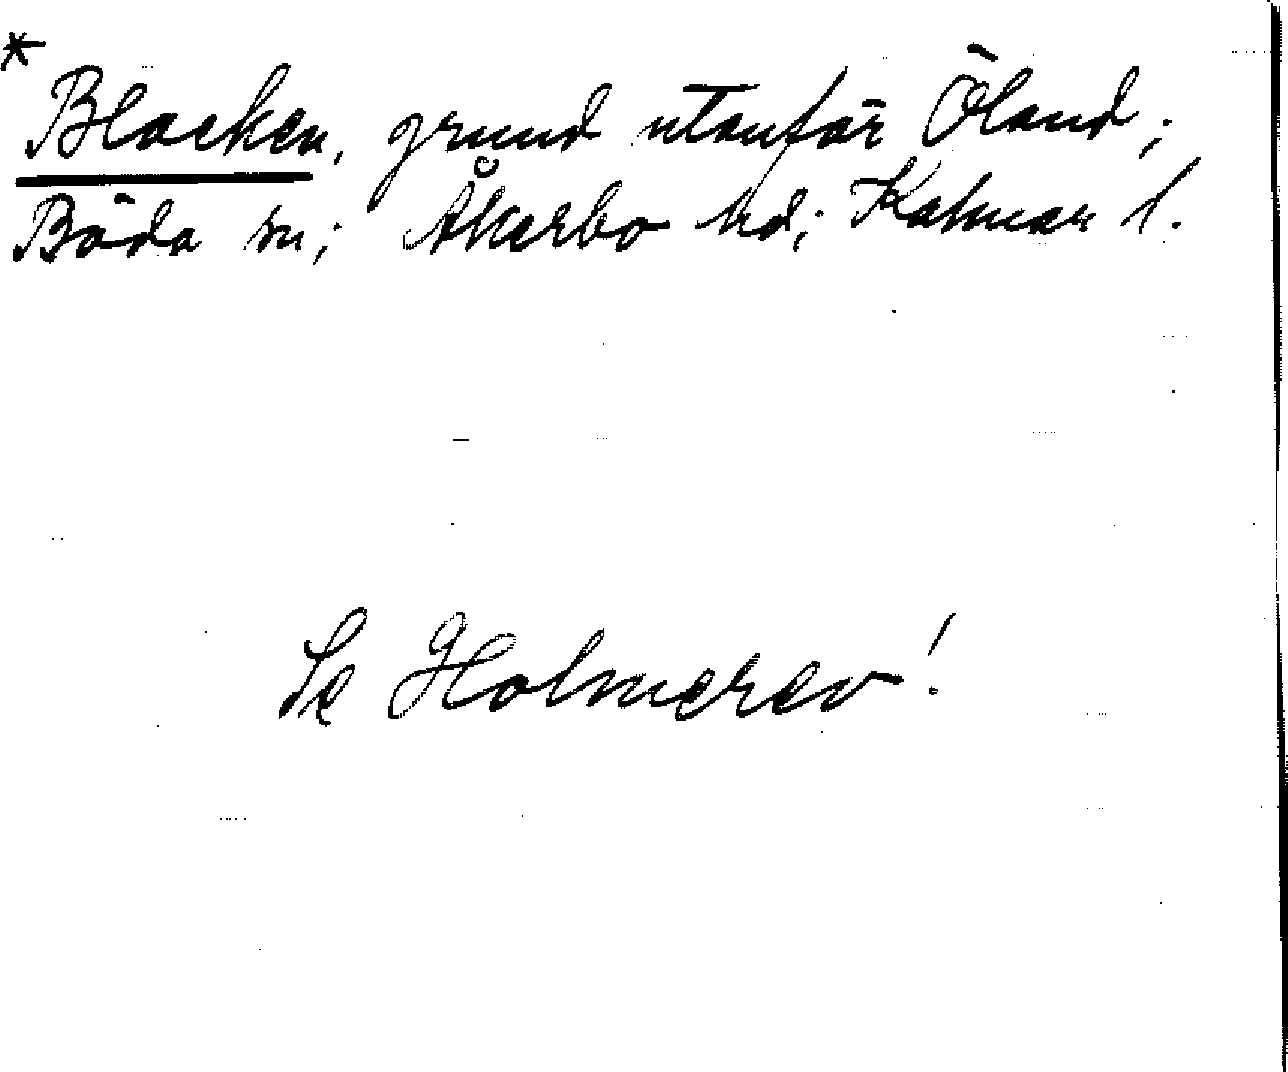 * Blacken, grund utanför Öland;
Böda sn; Åkerbo hd; Kalmar l.
Se Holmerev!